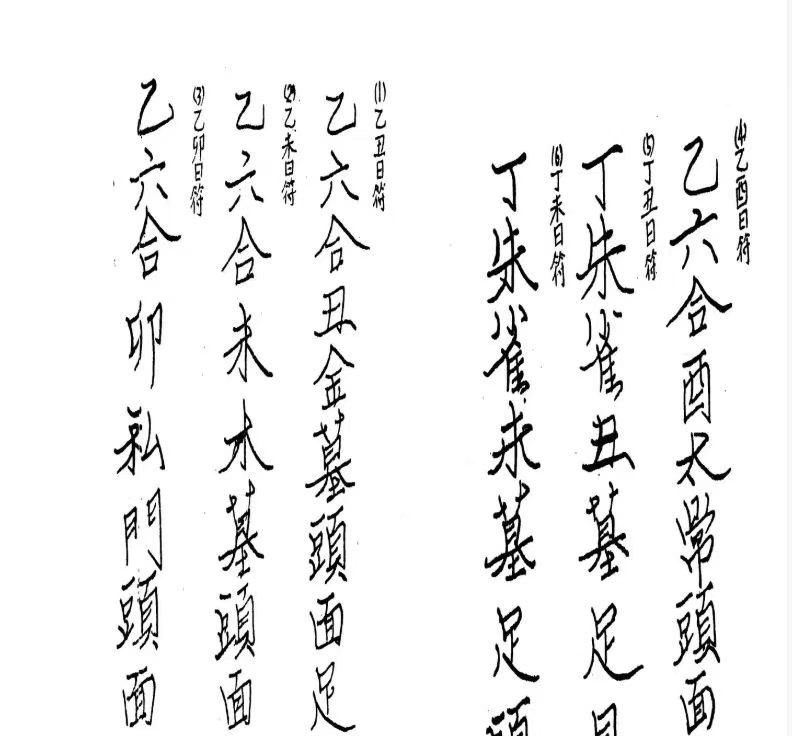 (1)乙丑日符
乙六合丑金墓頭面足
(2)乙未日符
乙六合未木墓頭面
(3)乙卯日符
乙六合卯私門頭面
(4)乙酉日符
乙六合酉太常頭面
(5)丁丑日符
丁朱雀丑墓足
(6)丁未日符
丁朱雀未墓足頭